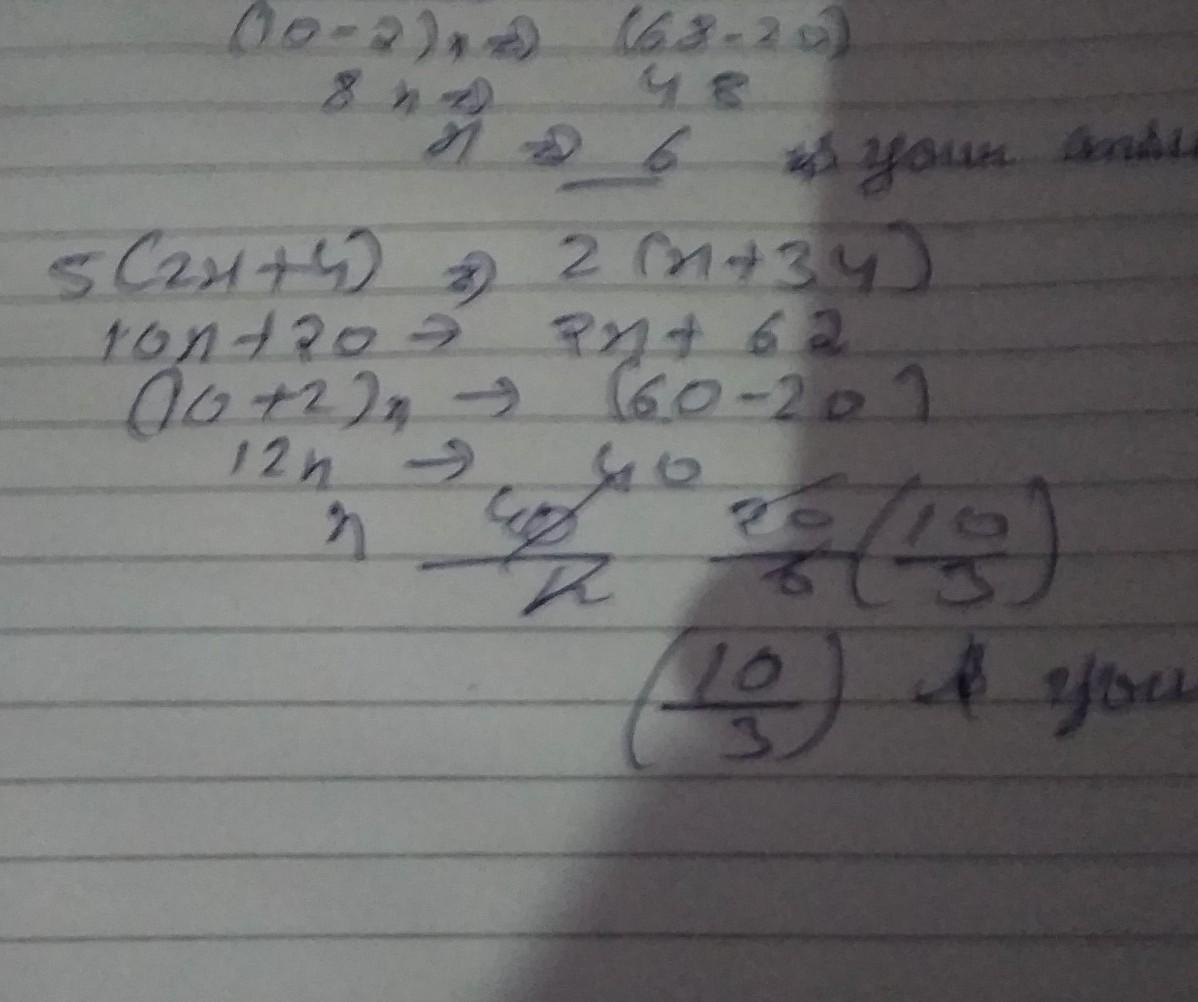 (10-2)x ⇒ (68-20)
8x ⇒ 48
x ⇒ 6 is your
5(2x+4) ⇒ 2(x+34)
10x+20 → 2x+62
(10+2)x → (60-20)
12x → 40
x 40/12 20/6 (10/3)
(10/3) is you